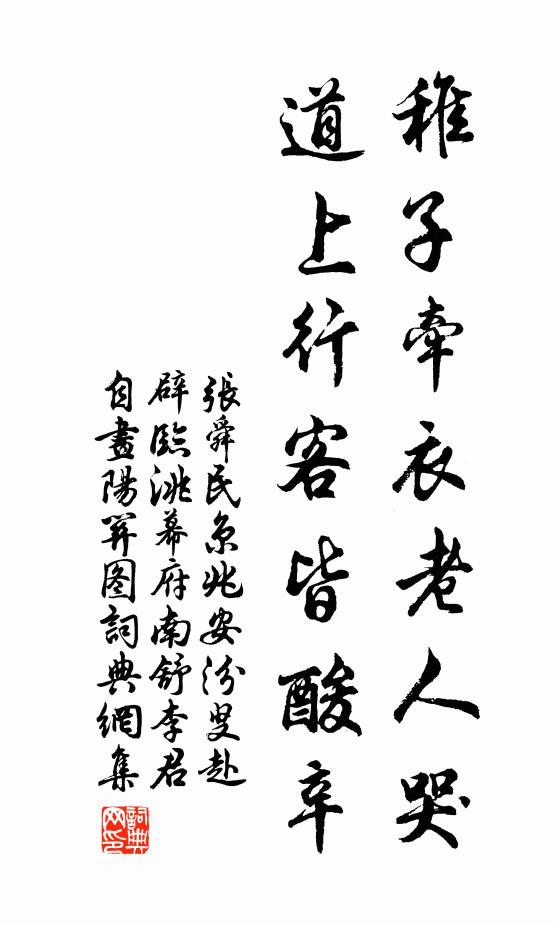 稚子牽衣老人哭
道上行客皆酸辛
張舜民京兆安汾叟赴
辟臨洮幕府南舒李君
自畫陽關图詞典網集
詞典網印